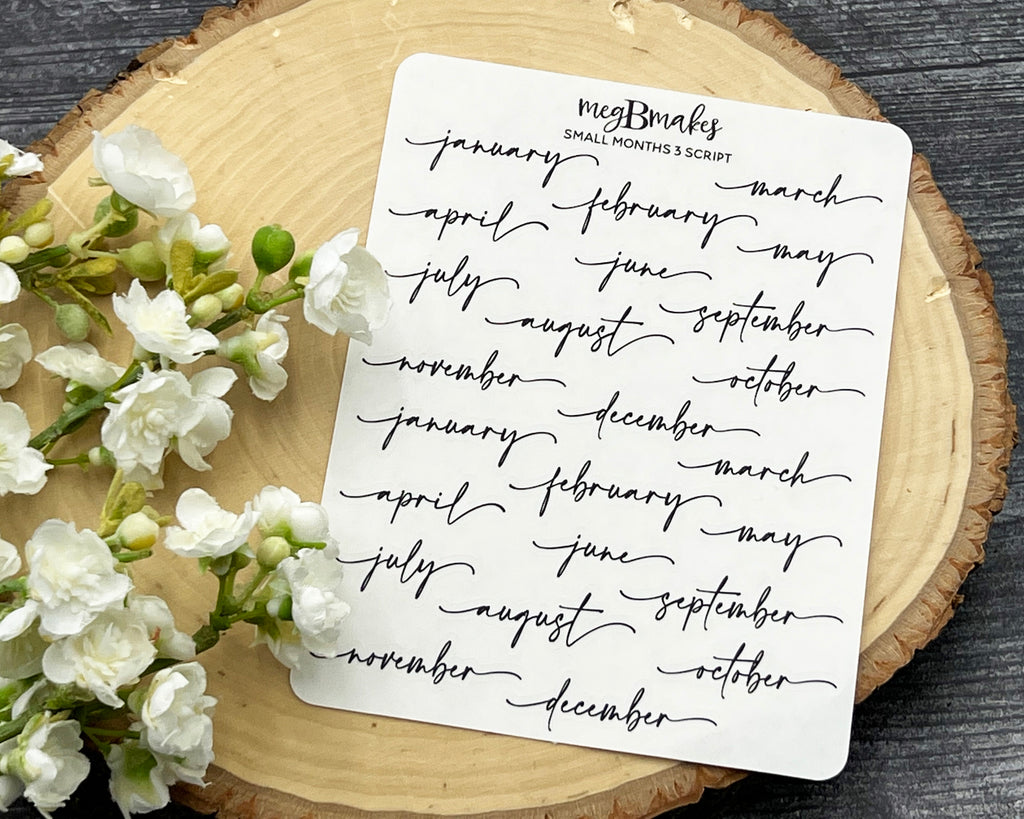 megBmakes
SMALL MONTHS 3 SCRIPT
january
february
march
april
june
may
july
august
september
november
december
october
january
february
march
april
june
may
july
august
september
november
december
october